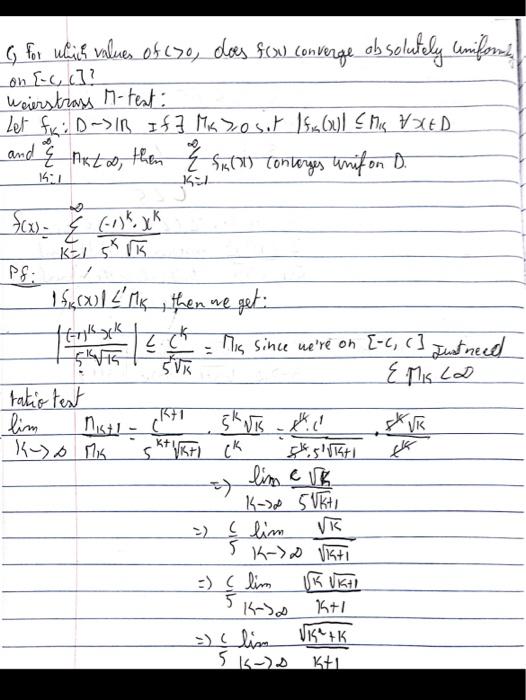 G, For which values of c>0, does f(x) converge absolutely uniformly
on [-c, c]?
weierstrass M-test:
Let fₖ: D->ℝ If ∃ Mₖ ≥ 0 s.t |fₖ(x)| ≤ Mₖ ∀x∈D
and ∑_{k=1}^∞ Mₖ < ∞, then ∑_{k=1}^∞ fₖ(x) converges unif on D.
f(x) = ∑_{k=1}^∞ (-1)^k · x^k / 5^k √k
Pf:
|fₖ(x)| ≤ Mₖ, then we get:
|(-1)^k x^k / 5^k √k| ≤ c^k / 5^k √k = Mₖ since we're on [-c, c] Just need
∑ Mₖ < ∞
ratio test
lim_{k->∞} Mₖ₊₁ / Mₖ = c^{k+1} / 5^{k+1} √k+1 · 5^k √k / c^k = c^k · c^1 / 5^k · 5^1 √k+1 · 5^k √k / c^k
=> lim_{k->∞} c √k / 5 √k+1
=> c/5 lim_{k->∞} √k / √k+1
=> c/5 lim_{k->∞} √k √k+1 / k+1
=> c/5 lim_{k->∞} √k²+k / k+1